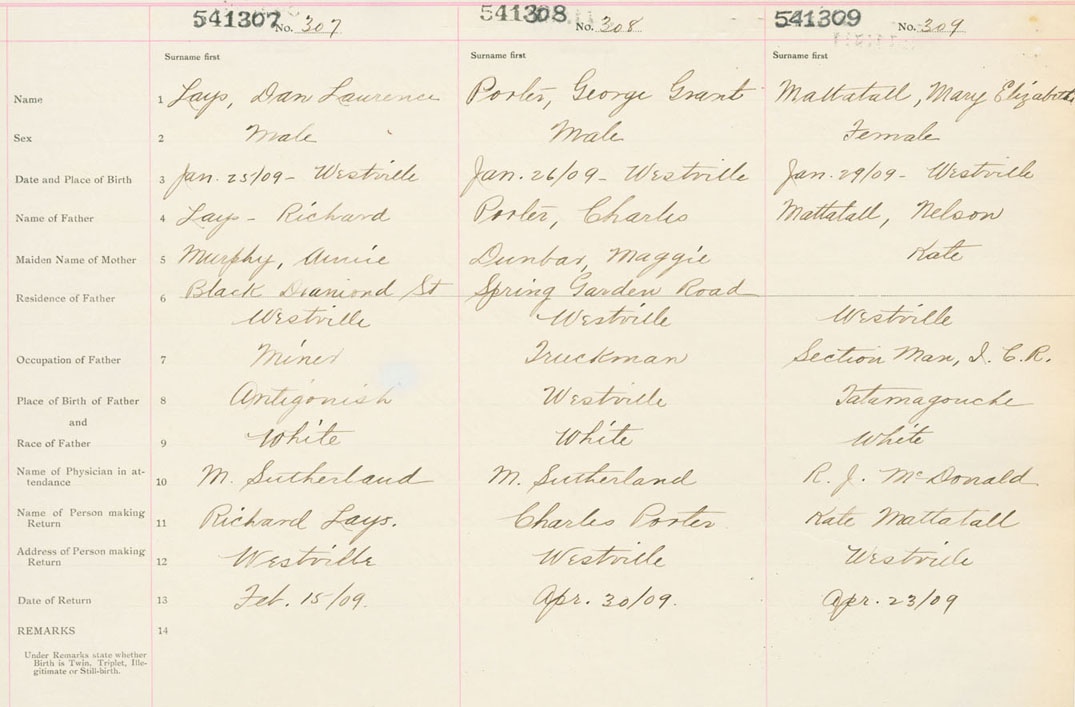 541307 No. 307 541308 No. 308 541309 No. 309
Surname first Surname first Surname first
Name 1 Lays, Dan Laurence Porter, George Grant Mattatall, Mary Elizabeth
Sex 2 Male Male Female
Date and Place of Birth 3 Jan. 25/09 - Westville Jan. 26/09 - Westville Jan. 29/09 - Westville
Name of Father 4 Lays - Richard Porter, Charles Mattatall, Nelson
Maiden Name of Mother 5 Murphy, Annie Dunbar, Maggie Kate
Residence of Father 6 Black Diamond St Spring Garden Road
Westville Westville Westville
Occupation of Father 7 Miner Truckman Section Man, I. C. R.
Place of Birth of Father 8 Antigonish Westville Tatamagouche
and
Race of Father 9 White White White
Name of Physician in at-
tendance 10 M. Sutherland M. Sutherland R. J. McDonald
Name of Person making
Return 11 Richard Lays. Charles Porter Kate Mattatall
Address of Person making
Return 12 Westville Westville Westville
Date of Return 13 Feb. 15/09. Apr. 30/09. Apr. 23/09
REMARKS 14
Under Remarks state whether
Birth is Twin, Triplet, Ille-
gitimate or Still-birth.